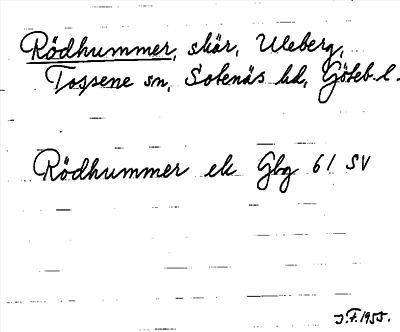 Rödhummer, skär, Uleberg,
Tossene sn, Sotenäs hd, Göteb. l.
Rödhummer ek Gbg 61 SV
J.F. 1955.